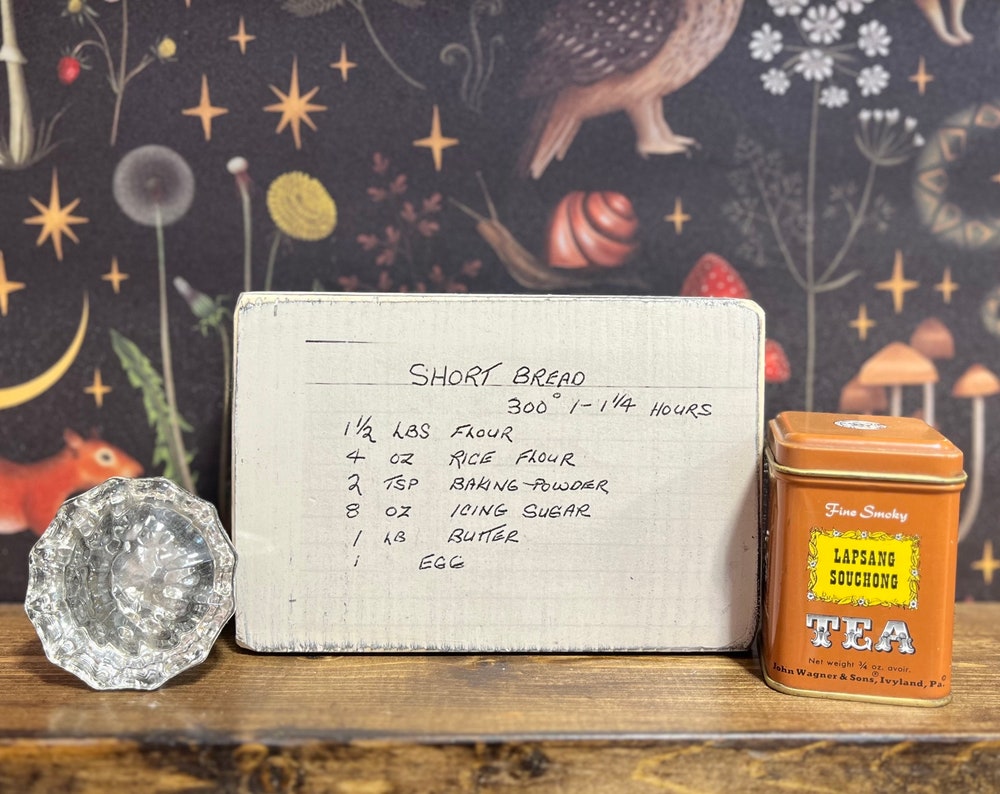 SHORT BREAD
300° 1-1¼ HOURS
1½ LBS FLOUR
4 OZ RICE FLOUR
2 TSP BAKING POWDER
8 OZ ICING SUGAR
1 LB BUTTER
1 EGG
Fine Smoky
LAPSANG
SOUCHONG
TEA
Net weight ¾ oz. avoir.
®
©
John Wagner & Sons, Ivyland, Pa.